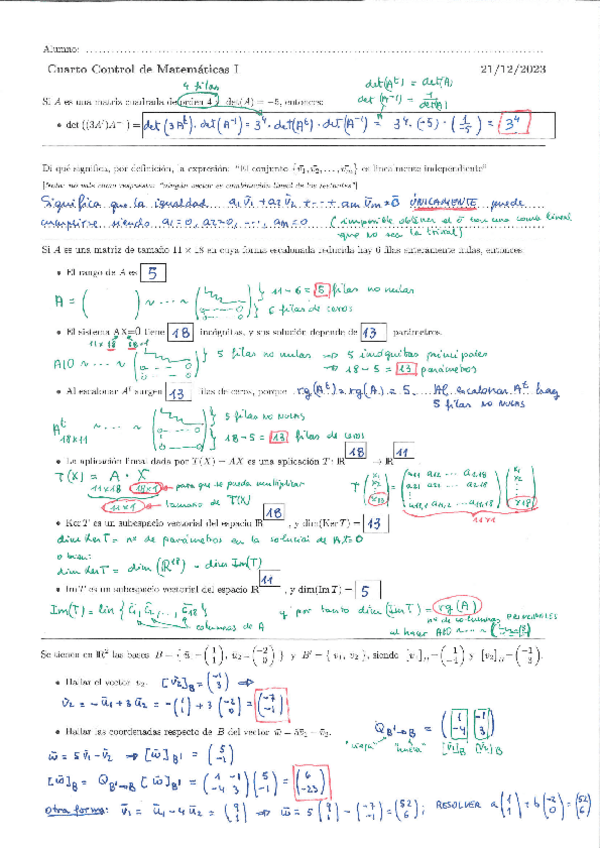 Alumno:
Cuarto Control de Matemáticas I 21/12/2023
4 filas
det(Aᵗ) = det(A)
Si A es una matriz cuadrada de orden 4 y det(A) = −5, entonces: det(A⁻¹) = 1/det(A)
• det((3Aᵗ)A⁻¹) = det(3Aᵗ)·det(A⁻¹) = 3⁴·det(Aᵗ)·det(A⁻¹) = 3⁴·(-5)·(1/-5) = 3⁴
Di qué significa, por definición, la expresión: "El conjunto {v̄₁, v̄₂, ..., v̄ₘ} es linealmente independiente"
[Nota: no vale como respuesta "ningún vector es combinación lineal de los restantes"]
Significa que la igualdad a₁v̄₁ + a₂v̄₂ + ··· + aₘv̄ₘ = 0̄ ÚNICAMENTE puede
cumplirse siendo a₁=0, a₂=0, ···, aₘ=0 (imposible obtener el 0̄ con una comb. lineal
que no sea la trivial)
Si A es una matriz de tamaño 11 × 18 en cuya forma escalonada reducida hay 6 filas enteramente nulas, entonces
• El rango de A es 5
A = ( ) ~ ··· ~ 11 - 6 = 5 filas no nulas
6 filas de ceros
• El sistema AX=0̄ tiene 18 incógnitas, y sus solución depende de 13 parámetros.
11×18 18×1
A|0 ~ ··· ~ 5 filas no nulas → 5 incógnitas principales
→ 18-5 = 13 parámetros
• Al escalonar Aᵗ surgen 13 filas de ceros, porque rg(Aᵗ) = rg(A) = 5. Al escalonar Aᵗ hay
5 filas NO NULAS
Aᵗ ~ ··· ~ 5 filas NO NULAS
18×11 18-5 = 13 filas de ceros
• La aplicación lineal dada por T(X) = AX es una aplicación T: ℝ 18 → ℝ 11
T(X) = A · X
11×18 18×1 → para que se pueda multiplicar
11×1 → tamaño de T(X)
• Ker T es un subespacio vectorial del espacio ℝ 18, y dim(Ker T) = 13
dim Ker T = nº de parámetros en la solución de AX=0
o bien:
dim Ker T = dim(ℝ¹⁸) - dim Im(T)
• Im T es un subespacio vectorial del espacio ℝ 11, y dim(Im T) = 5
Im(T) = lin{c̄₁, c̄₂, ..., c̄₁₈} y por tanto dim(Im T) = rg(A)
columnas de A nº de columnas PRINCIPALES
al hacer A|0 ~ ··· ~
Se tienen en ℝ² las bases B = {ū₁ = (1 1), ū₂ = (-2 0)} y B' = {v̄₁, v̄₂}, siendo [v̄₁]_B = (1 -4) y [v̄₂]_B = (-1 3).
• Hallar el vector v̄₂. [v̄₂]_B = (-1 3) ⇒
v̄₂ = -ū₁ + 3ū₂ = -(1 1) + 3(-2 0) = (-7 -1)
• Hallar las coordenadas respecto de B del vector w̄ = 5v̄₁ − v̄₂. Q_B'→B = (1 -1 -4 3)
"vieja" "nueva" [v̄₁]_B [v̄₂]_B
w̄ = 5v̄₁ - v̄₂ → [w̄]_B' = (5 -1)
[w̄]_B = Q_B'→B [w̄]_B' = (1 -1 -4 3)(5 -1) = (6 -23)
Otra forma: v̄₁ = ū₁ - 4ū₂ = (9 1) ⇒ w̄ = 5(9 1) - (-7 -1) = (52 6); RESOLVER a(1 1) + b(-2 0) = (52 6)